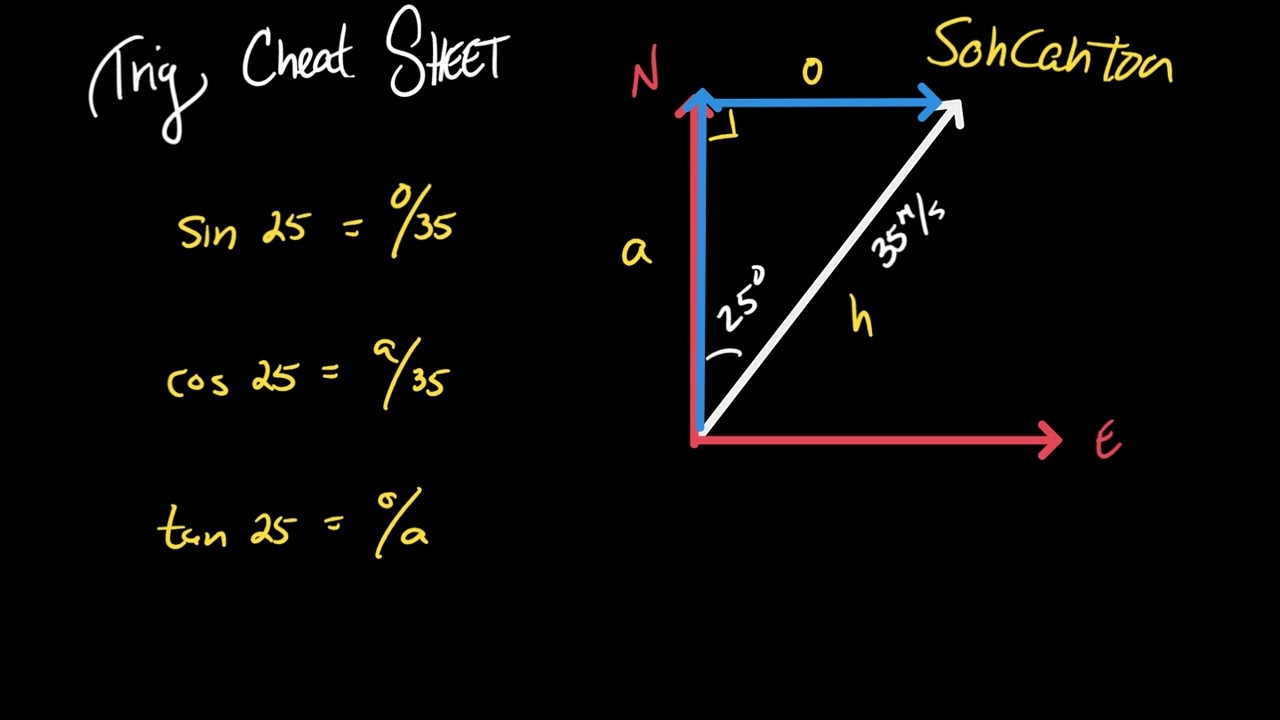 Trig Cheat SHEET
SohCahToa
N
o
sin 25 = o/35
a
35 m/s
25°
h
cos 25 = a/35
E
tan 25 = o/a